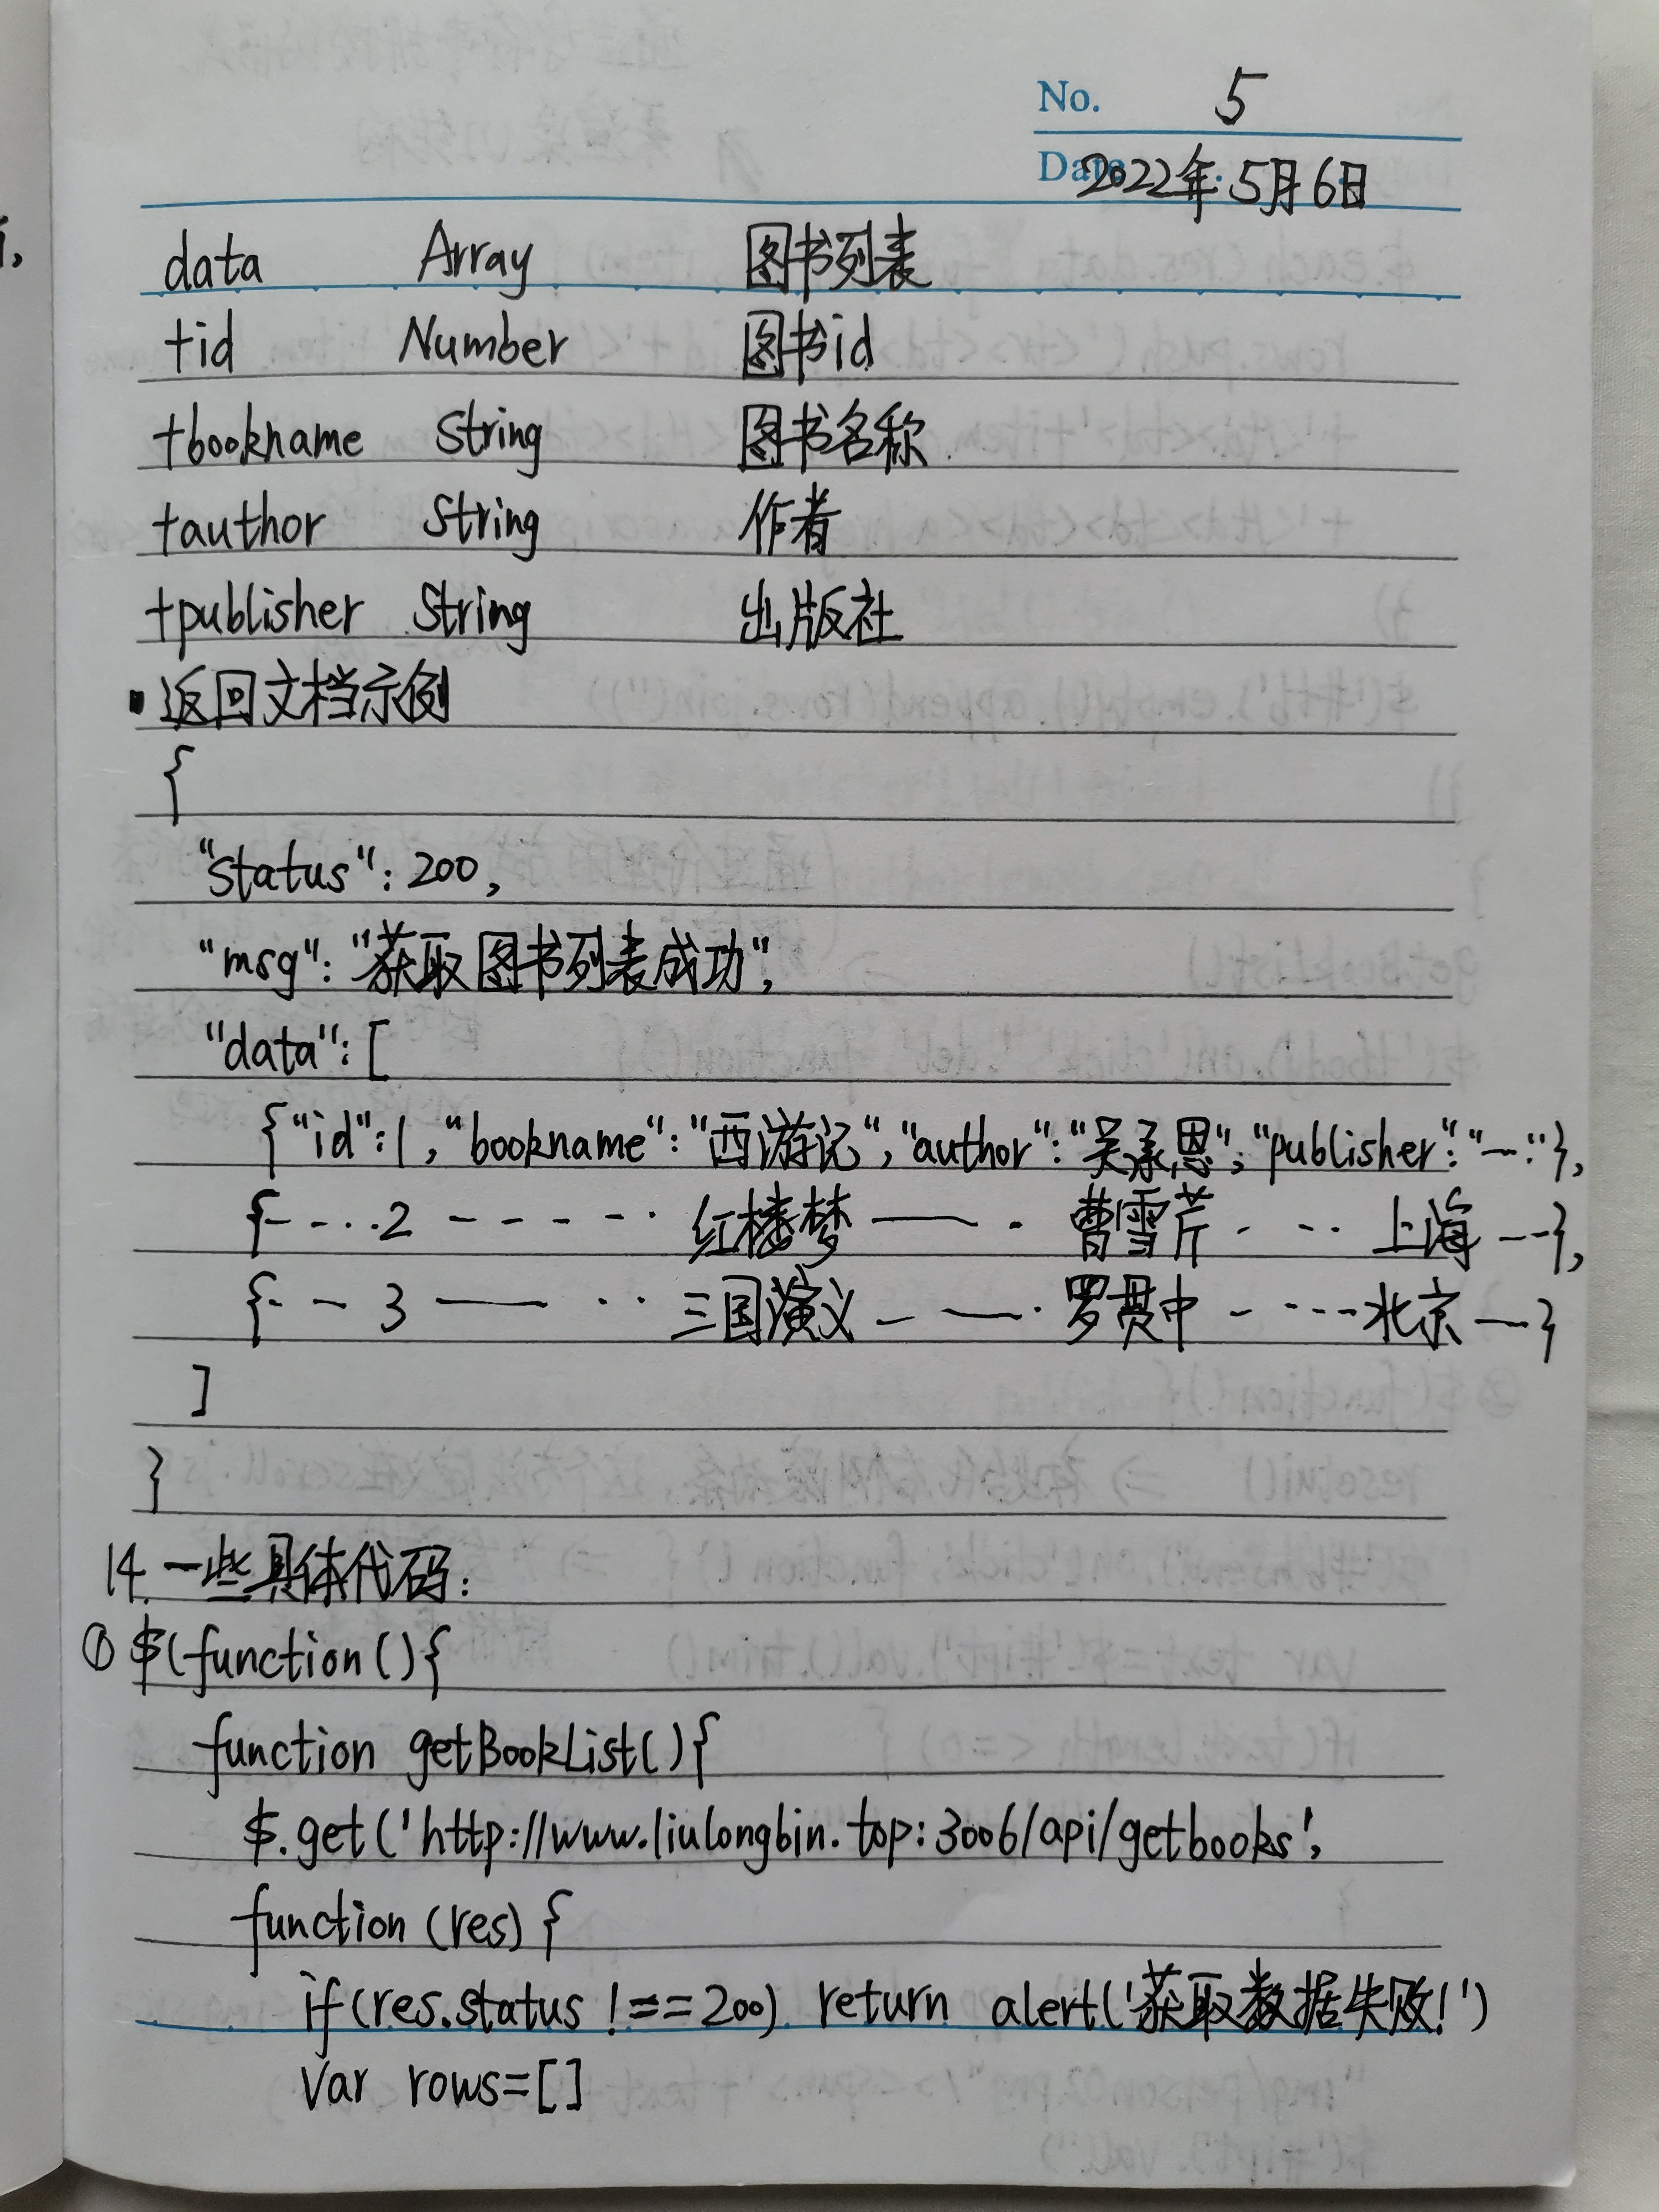 No. 5
Date 2022年5月6日
data Array 图书列表
+id Number 图书id
+bookname String 图书名称
+author String 作者
+publisher String 出版社
▪返回文档示例
{
"status": 200,
"msg": "获取图书列表成功",
"data": [
{"id":1,"bookname":"西游记","author":"吴承恩","publisher":"—"},
{- - ··2 - - - - - · 红楼梦 —— · 曹雪芹 · ·· 上海 --},
{- - 3 —— ·· 三国演义 - —· 罗贯中 - ----北京 —}
]
}
14. 一些具体代码:
① $(function(){
function getBookList(){
$.get('http://www.liulongbin.top:3006/api/getbooks',
function (res) {
if(res.status !== 200) return alert('获取数据失败!')
var rows=[]